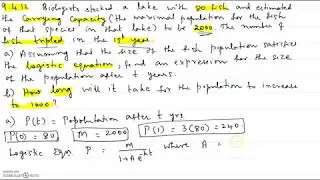 9.4.12 Biologists stocked a lake with 80 fish and estimated
the Carrying Capacity (the maximal population for the fish
of that species in that lake) to be 2000. The number of
fish tripled in the 1st year
a) Assuming that the size of the fish population satisfies
the logistic equation, find an expression for the size
of the population after t years.
b) How long will it take for the population to increase
to 1000?
a) P(t) = Population after t yrs
P(0) = 80 M = 2000 P(1) = 3(80) = 240
Logistic Eqn. P = M / 1 + A e^-kt where A =